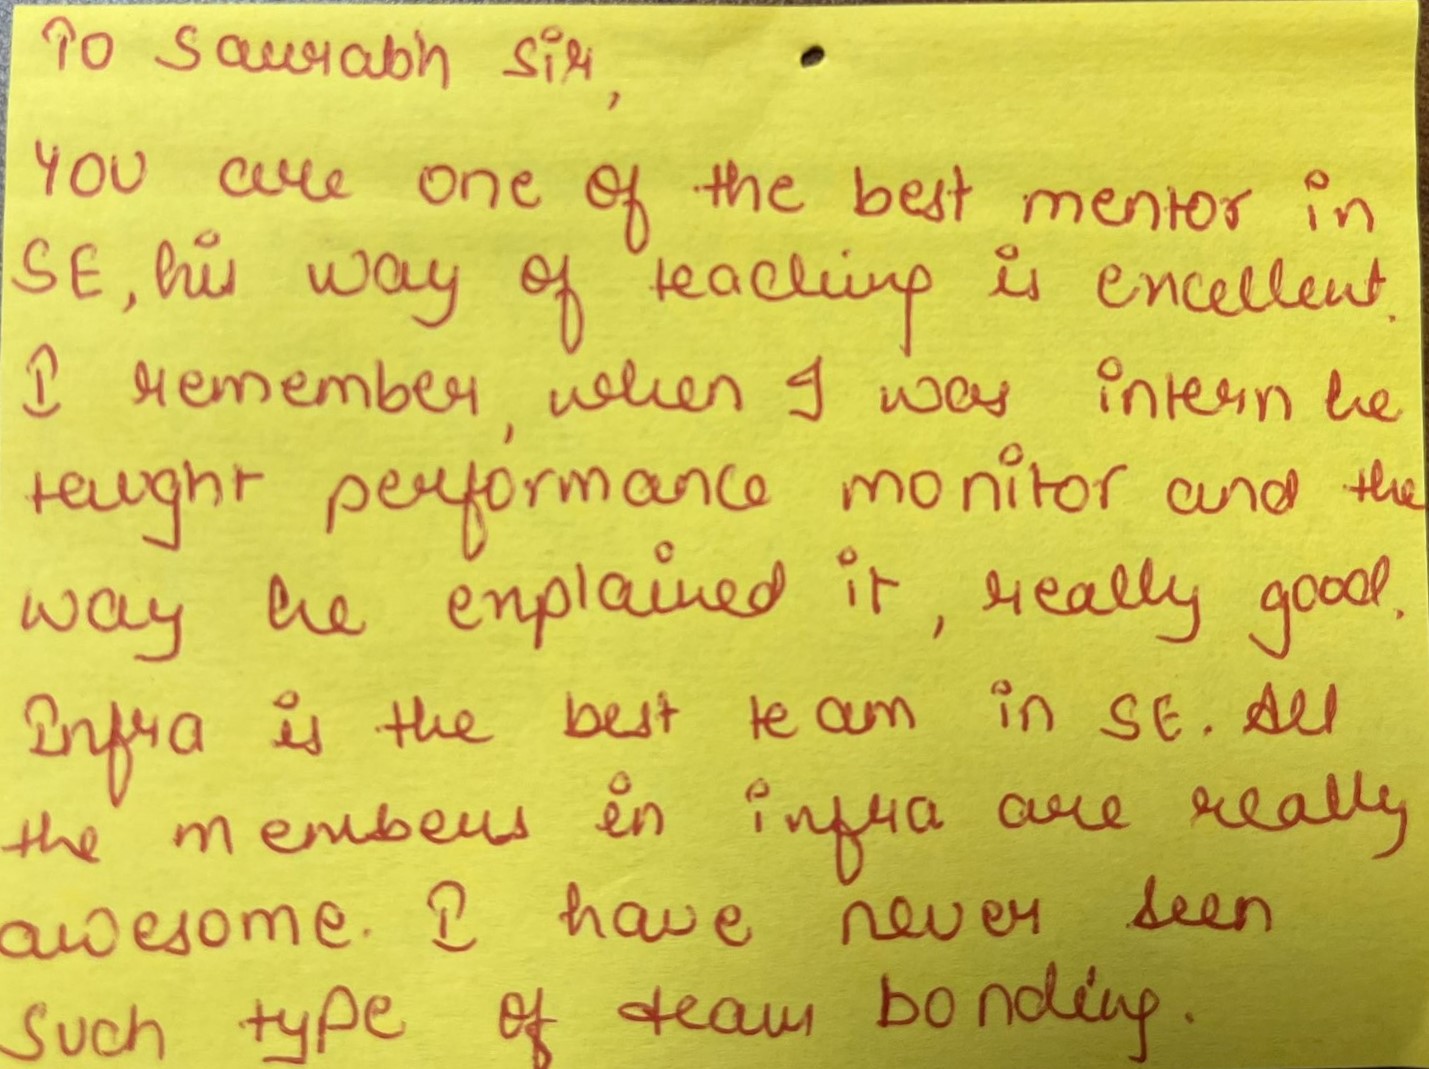 To Saurabh Sir,
You are one of the best mentor in
SE, his way of teaching is excellent.
I remember, when I was intern he
taught performance monitor and the
way he explained it, really good.
Infra is the best team in SE. All
the members in infra are really
awesome. I have never seen
such type of team bonding.